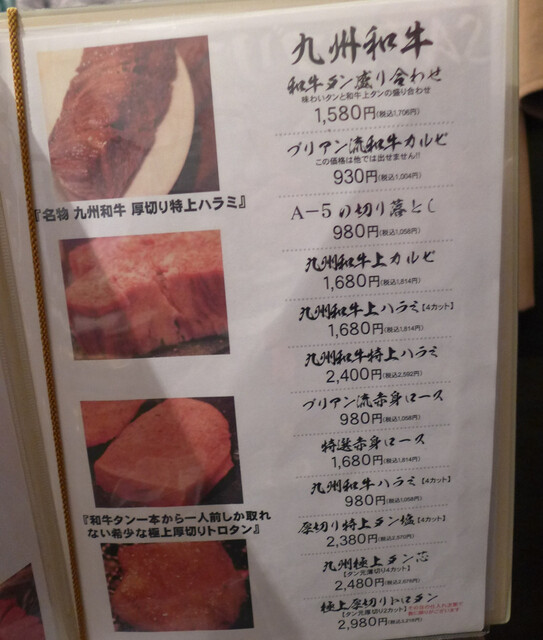 九州和牛
和牛タン盛り合わせ
味わいタンと和牛上タンの盛り合わせ
1,580円(税込1,706円)
ブリアン流和牛カルビ
この価格は他では出せません!!
930円(税込1,004円)
A-5の切り落とし
980円(税込1,058円)
九州和牛上カルビ
1,680円(税込1,814円)
九州和牛上ハラミ【4カット】
1,680円(税込1,814円)
九州和牛特上ハラミ
2,400円(税込2,592円)
ブリアン流赤身ロース
980円(税込1,058円)
特選赤身ロース
1,680円(税込1,814円)
九州和牛ハラミ【4カット】
980円(税込1,058円)
厚切り特上タン塩【4カット】
2,380円(税込2,570円)
九州極上タン芯
【タン元薄切り4カット】
2,480円(税込2,678円)
極上厚切りトロタン
【タン元厚切り2カット】
2,980円(税込3,218円)
『名物 九州和牛 厚切り特上ハラミ』
『和牛タン一本から一人前しか取れ
ない希少な極上厚切りトロタン』